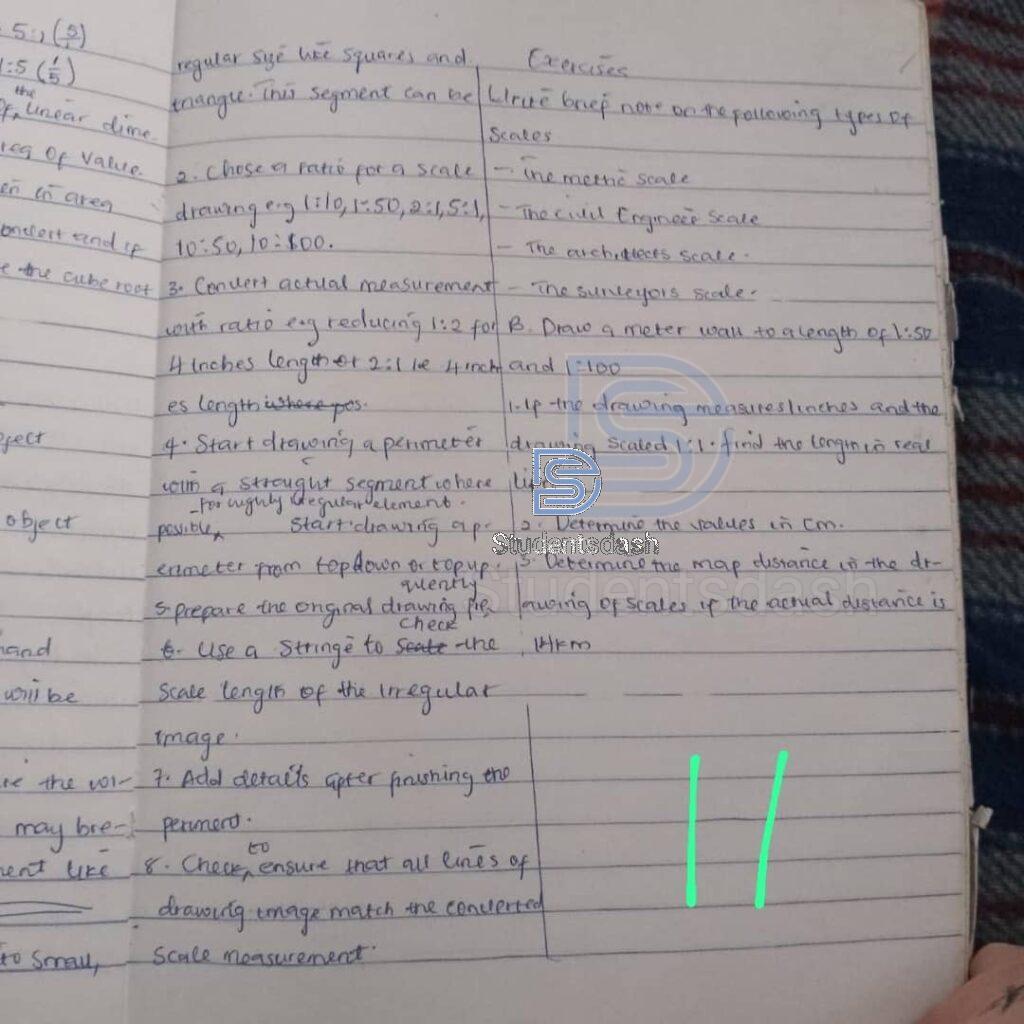 5:, (5/1)
1:5 (1/5)
the
of, linear dime.
Of Value.
en in area
and if
the cube root
object
object
hand
will be
the
may bre-
ment like
to small,
regular size like squares and
triangle. This segment can be
2. Chose a ratio for a scale
drawing e.g 1:10, 1:50, 2:1, 5:1,
10:50, 10:100.
3. Convert actual measurement
with ratio e.g reducing 1:2 for
4 inches length or 2:1 ie 4 inch
es length where pos.
4. Start drawing a perimeter
with a straught segment where
For highly iregular element.
possible, Start drawing a p-
erimeter from top down or top up.
quently
5. prepare the original drawing fre,
check
6. Use a Stringe to scale the
scale length of the irregular
image.
7. Add details after finishing the
periment.
to
8. Check, ensure that all lines of
drawing image match the converted
Scale measurement.
Exercises
Write brief note on the following types of
scales
- The metric scale
- The civil Engineer scale
- The architects scale.
- The surveyors scale.
B. Draw a meter wall to a length of 1:50
and 1:100
1. If the drawing measures inches and the
drawing scaled 1:1. find the length in real
2. Determine the values in cm.
3. Determine the map distance in the dr-
awing of scales if the actual distance is
14km
Studentsdash
Studentsdash
11